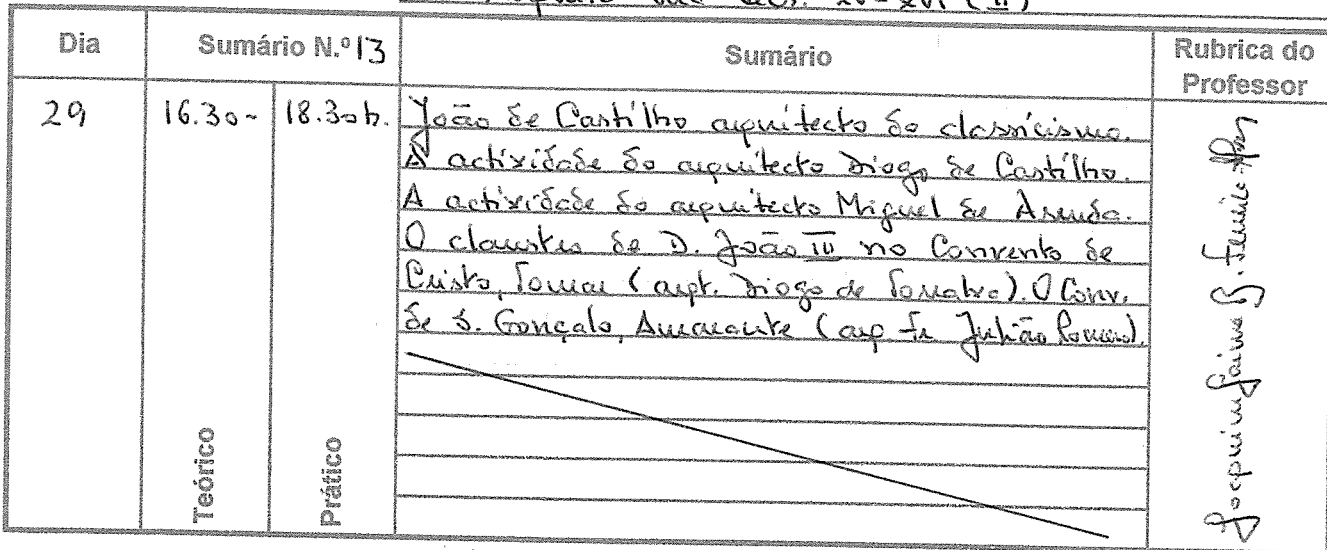 sécs. XV-XVI (II)
Dia
Sumário N.º 13
Sumário
Rubrica do Professor
29
16.30-
18.30h.
João de Castilho arquitecto do classicismo.
A actividade do arquitecto Diogo de Castilho.
A actividade do arquitecto Miguel de Arruda.
O claustro de D. João III no Convento de
Cristo, Tomar (arqt. Diogo de Torralva). O Conv.
de S. Gonçalo, Amarante (arq. Fr. Julião Romero).
Teórico
Prático
Joaquim Jaime B. Ferreira-Alves